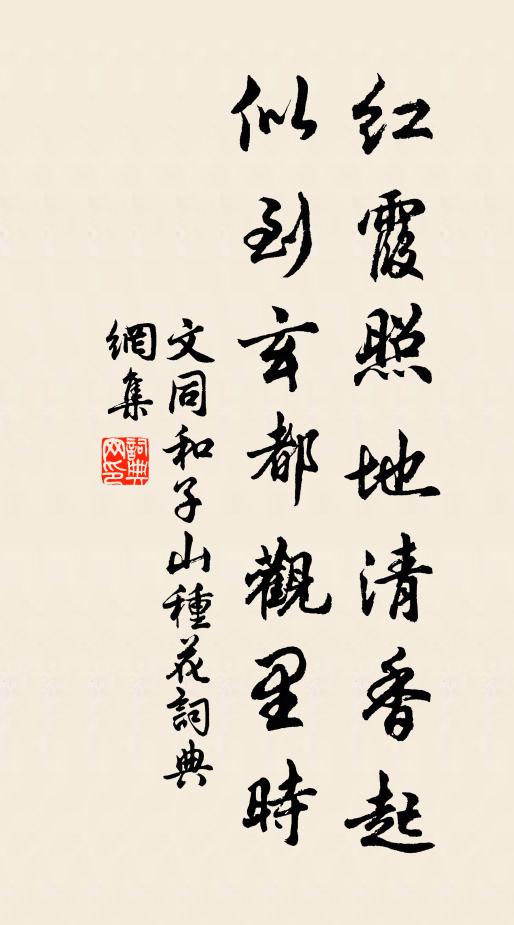 紅霞照地清香起
似到玄都觀里時
文同和子山種花詞典
網集
詞典網印